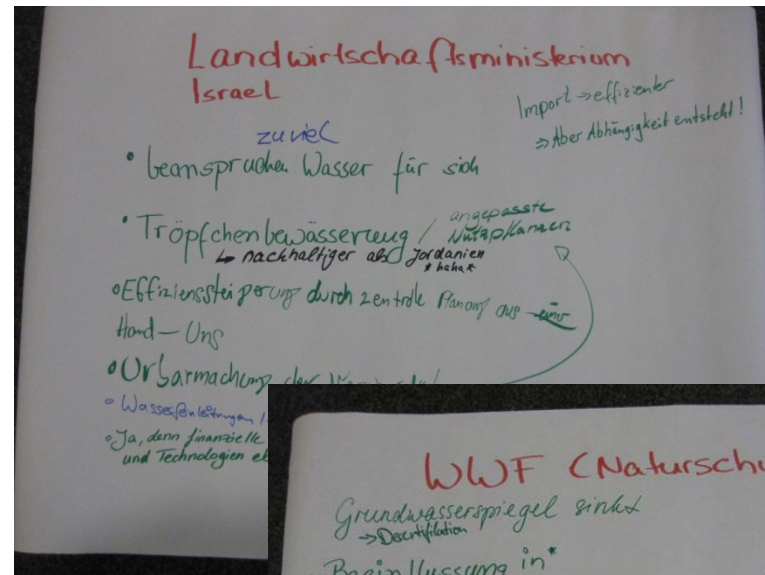 Landwirtschaftsministerium
Israel
Import → effizienter
⇒ Aber Abhängigkeit entsteht!
zuviel
• beanspruchen Wasser für sich
• Tröpfchenbewässerung / angepasste
Nutzpflanzen
↳ nachhaltiger als Jordanien
*haha*
• Effizienssteigerung durch zentrale Planung aus einer
Hand – Uns
• Urbarmachung der
• Wasserfernleitungen
• Ja, denn finanzielle
und Technologien
WWF (Naturschu
Grundwasserspiegel sinkt
→ Desertifikation
Beeinflussung in*